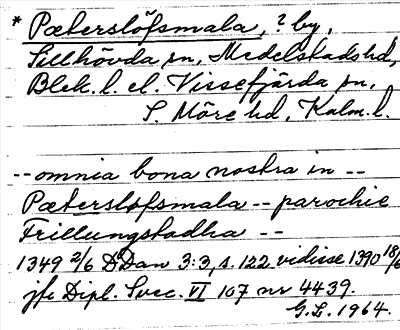 * Pæterslöfsmala, ? by,
Sillhövda sn, Medelstads hd,
Blek. l. el. Vissefjärda sn,
S. Möre hd, Kalm. l.
-- omnia bona nostra in --
Pæterslofsmala -- parochie
Frillungstadha --
1349 2/6 D Dan 3:3, s. 122 vidisse 1390 18/6
jfr Dipl. Svec. VI 107 nr 4439.
G.L. 1964.